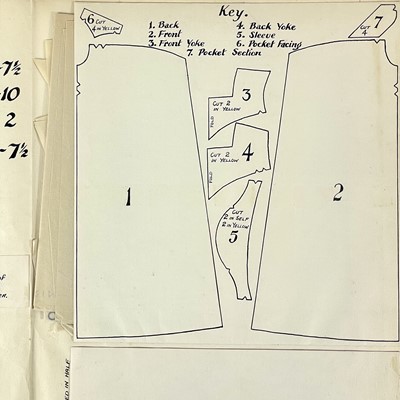 Key.
1. Back
2. Front
3. Front Yoke
4. Back Yoke
5. Sleeve
6. Pocket Facing
7. Pocket Section
6 CUT
4 IN YELLOW
7
CUT
4
-7½
-10
2
-7½
3
CUT 2
IN YELLOW
FOLD
4
CUT 2
IN YELLOW
FOLD
1
2
CUT
2 IN SELF
2 IN YELLOW
5
OF
ED IN HALF